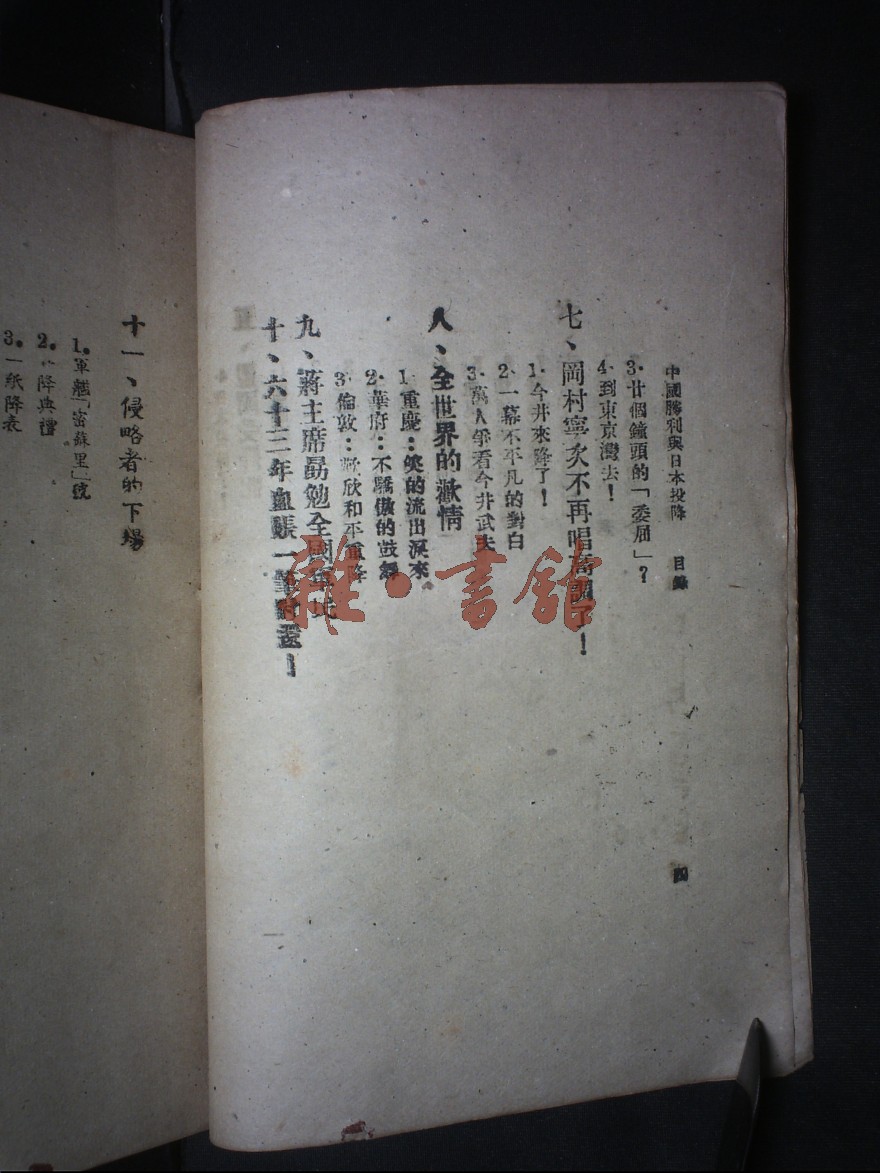 中國勝利與日本投降　目錄
3·廿個鐘頭的「委屈」？
4·到東京灣去！
七、岡村寧次不再唱高調了！
1·今井來降了！
2·一幕不平凡的對白
3·萬人爭看今井武夫
八、全世界的歡情
1·重慶：笑的流出淚來
2·華府：不驕傲的鼓舞
3·倫敦：歡欣和平重降
九、蔣主席勗勉全國軍民
十、六十三年血賬一筆
四
十一、侵略者的下場
1·軍艦「密蘇里」號
2·降典禮
3·一紙降表
雜·書館